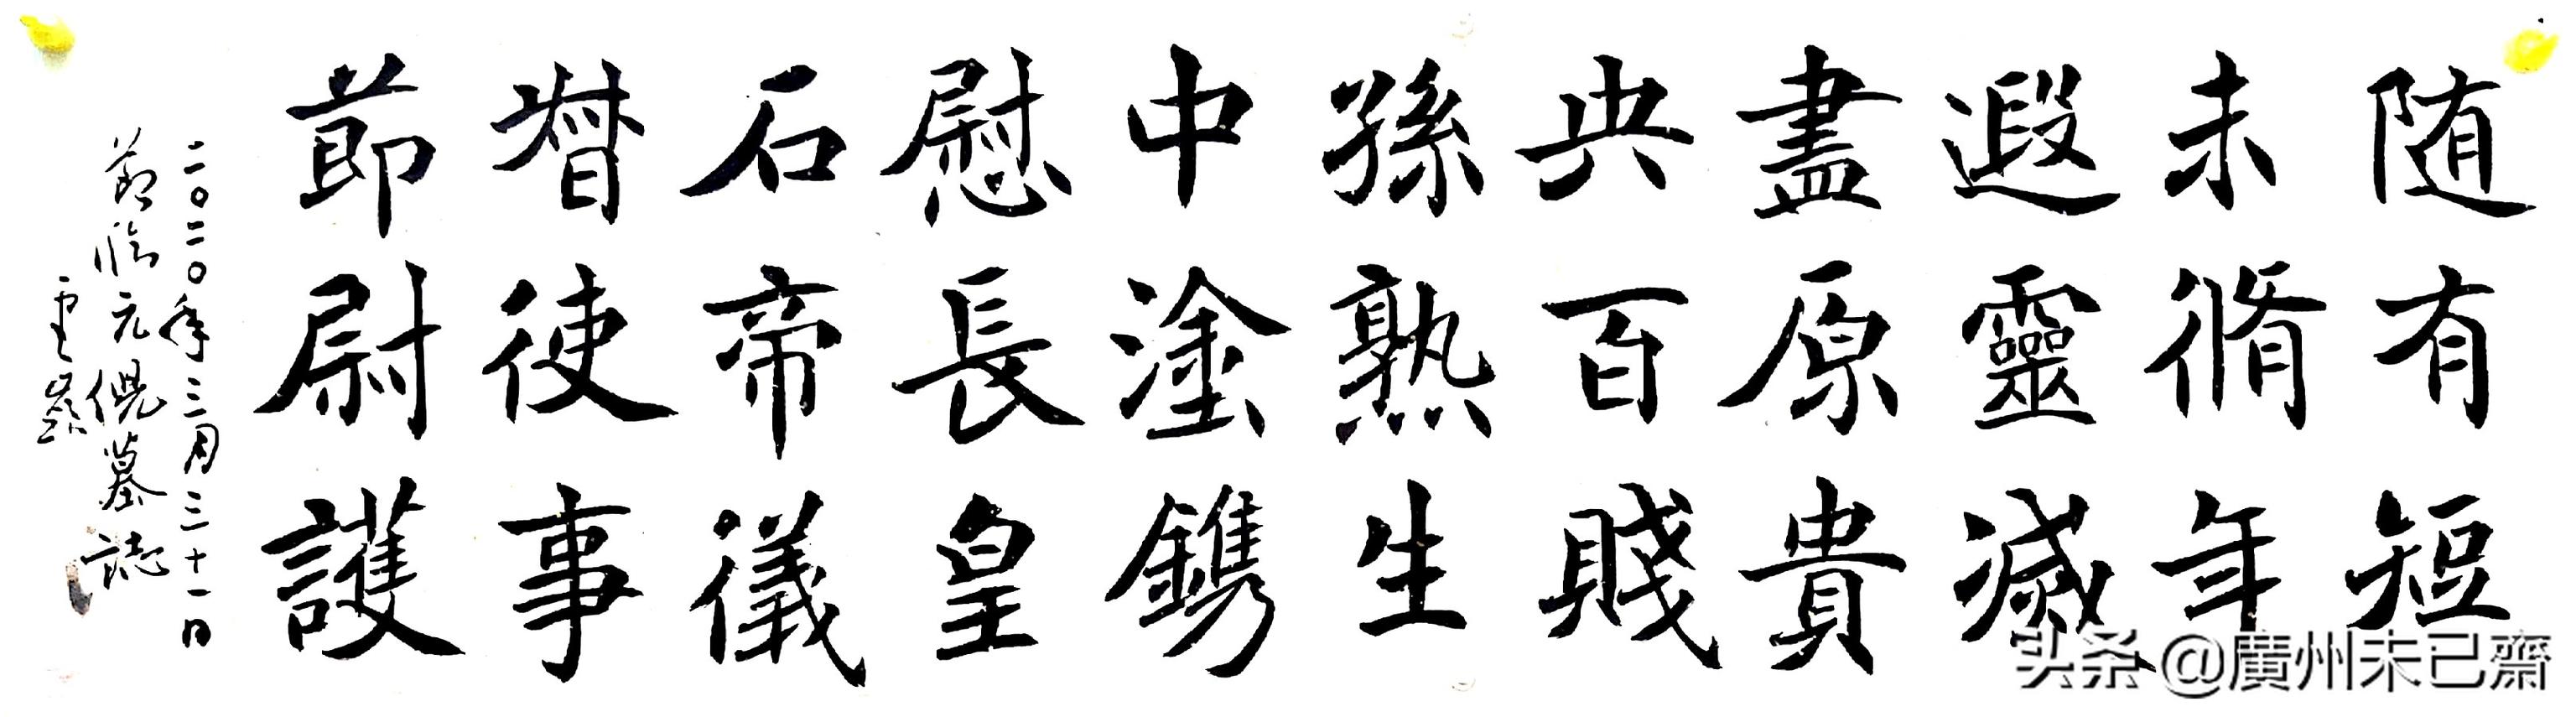 随有短
未脩年
遐靈滅
盡原貴
央百賤
孫熟生
中塗鐫
慰長皇
石帝儀
督使事
莭尉護
二〇二〇年三月三十一日
節临元倪墓誌
头条 @廣州未已齋